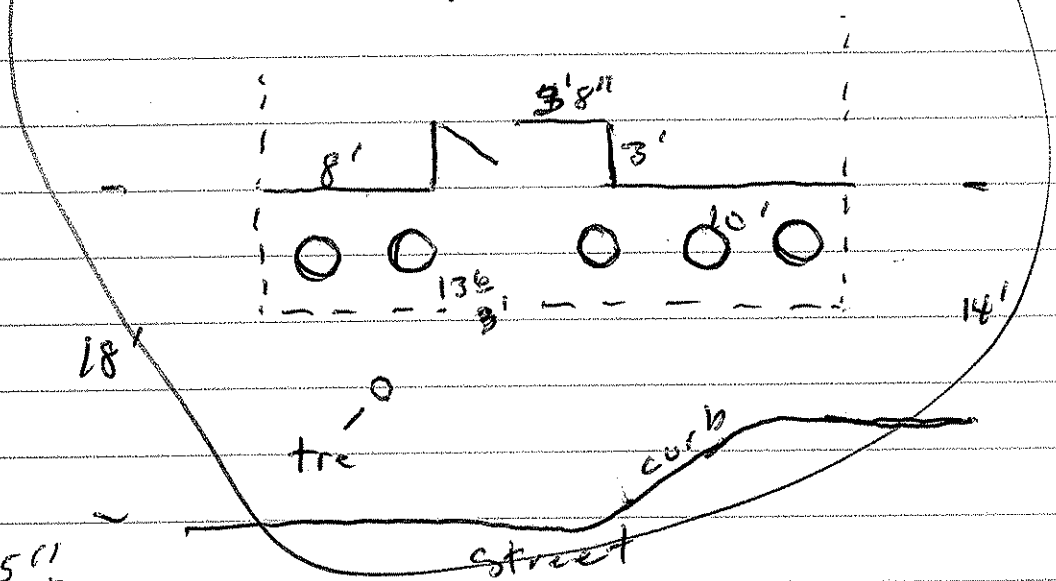 8'8"
8'
3'
10'
13
3'
14'
18'
tre
curb
street
5"